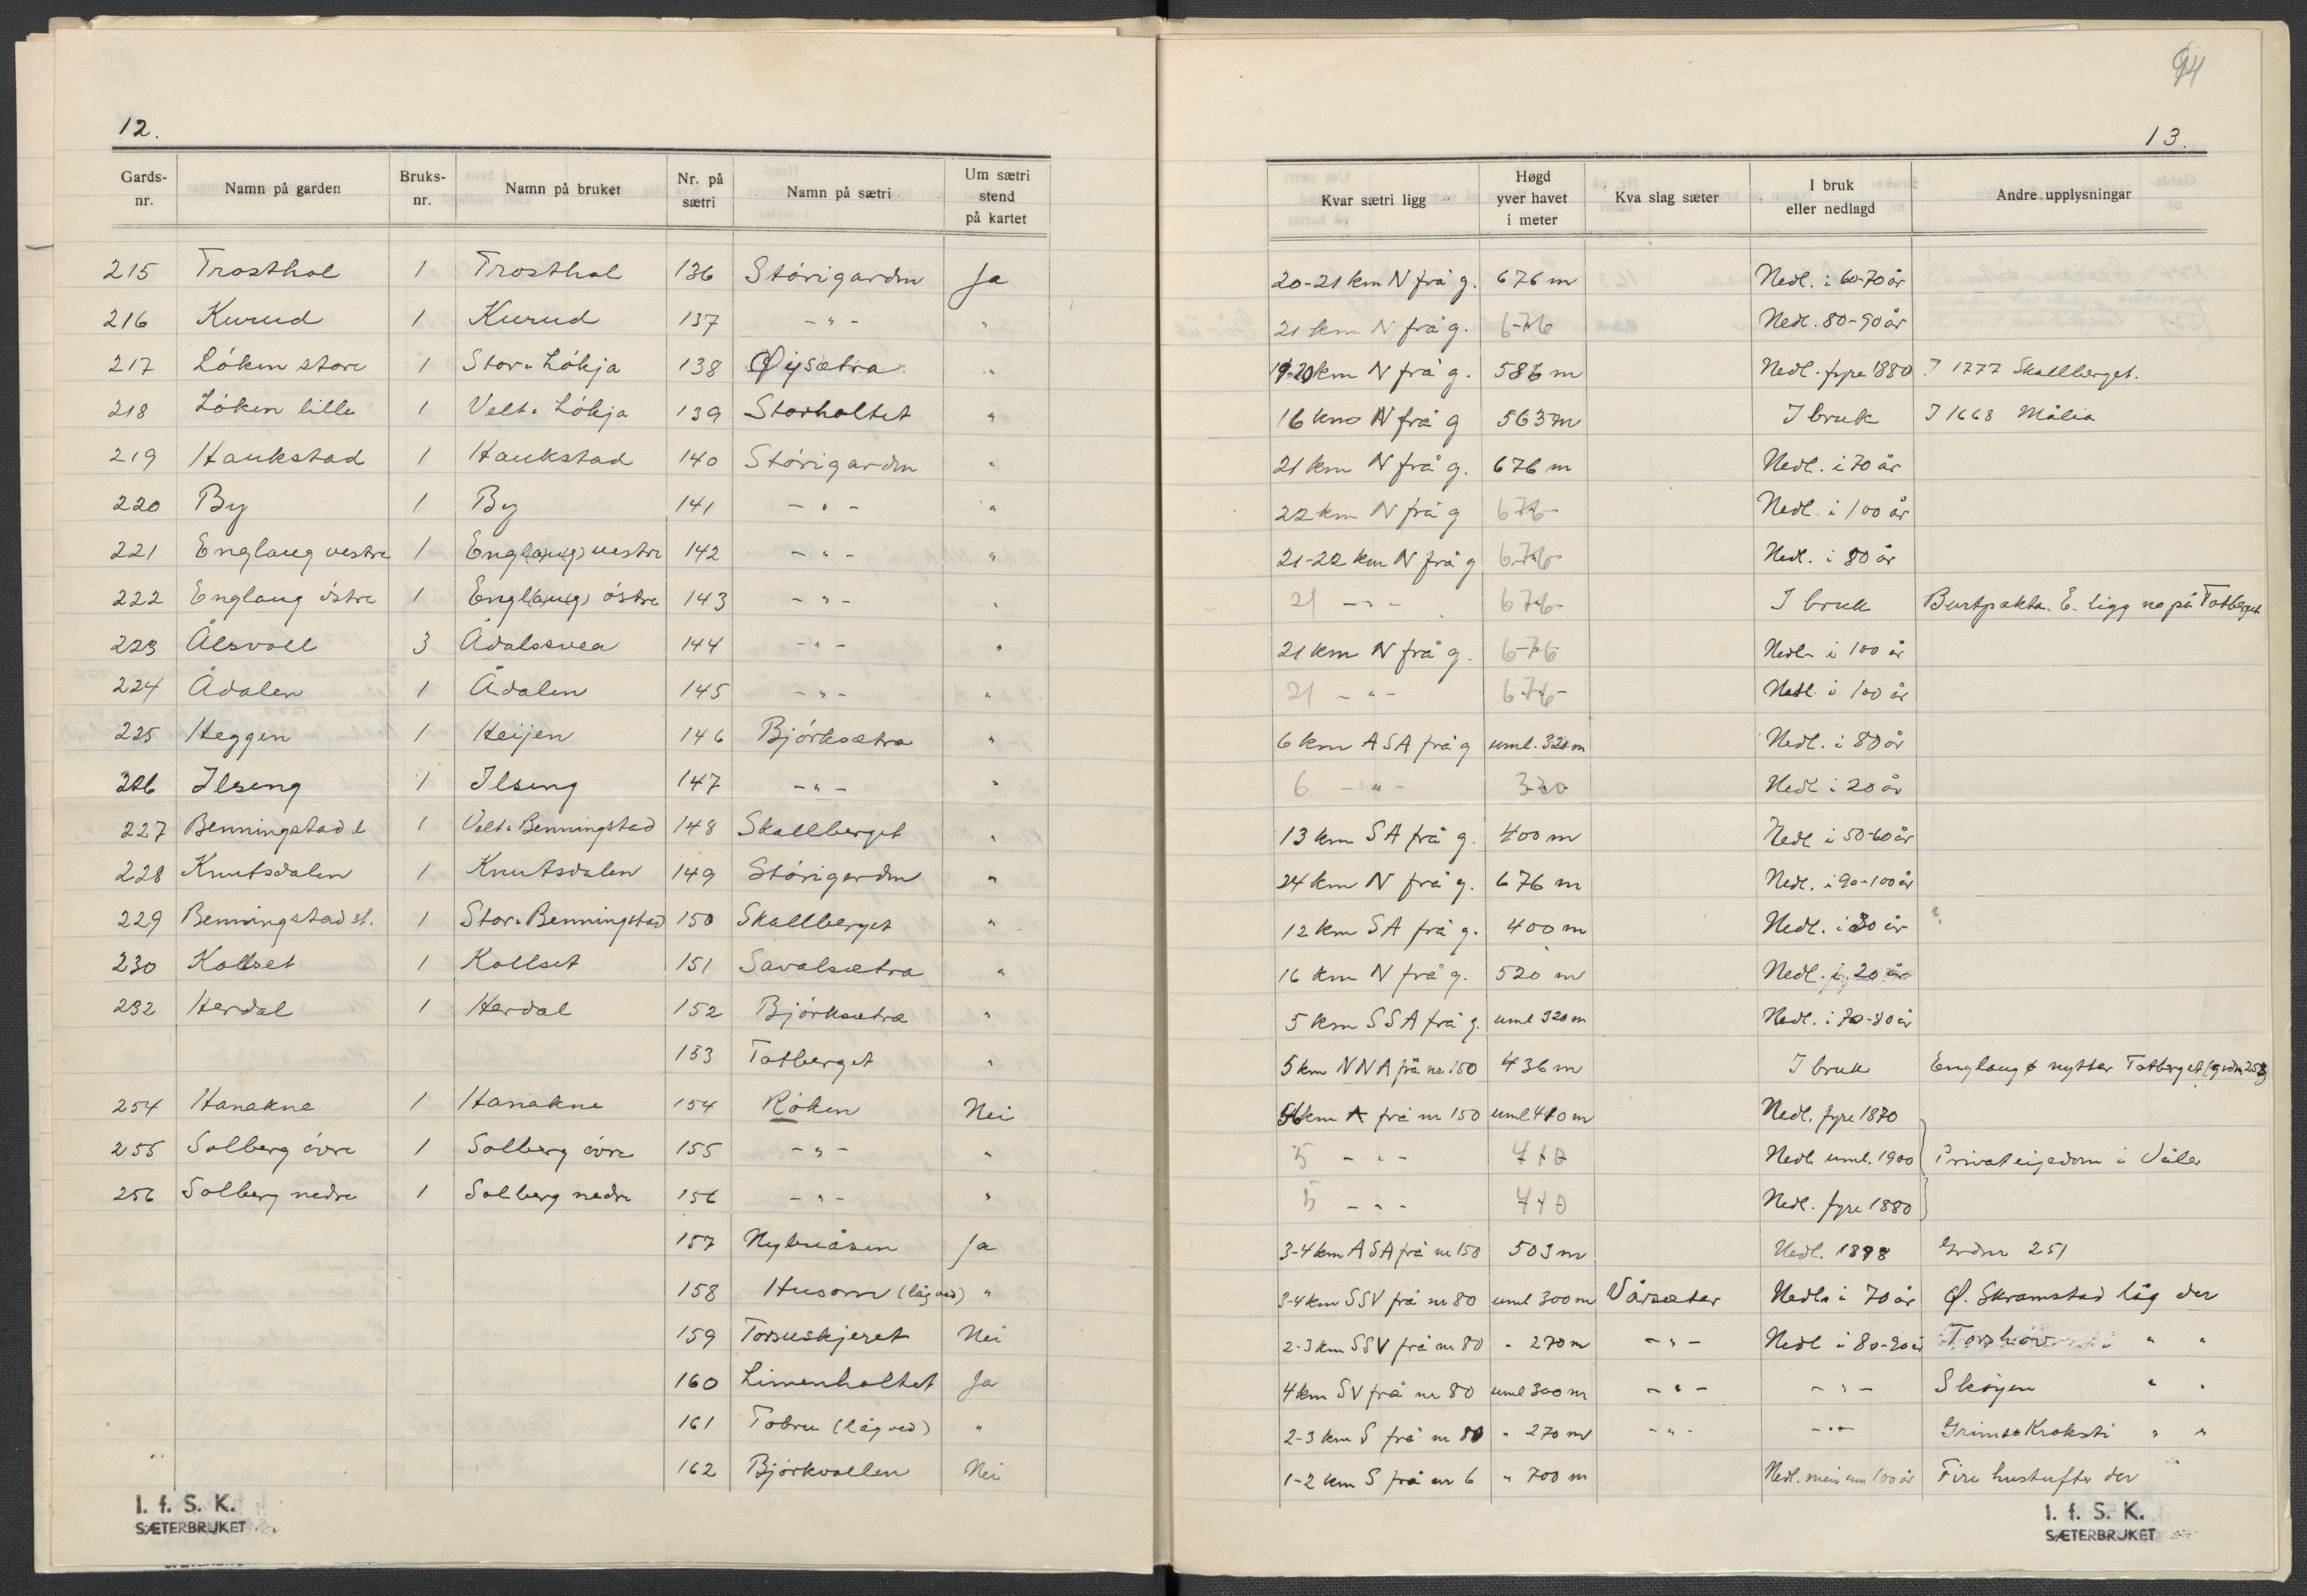 94
12.
Gards-nr. Namn på garden Bruks-nr. Namn på bruket Nr. på sætri Namn på sætri Um sætri stend på kartet
215 Trosthol 1 Trosthol 136 Störigardn Ja
216 Kurud 1 Kurud 137 - " - "
217 Löken store 1 Stor-Lökja 138 Øysætra "
218 Löken lille 1 Velt-Lökja 139 Storholtet "
219 Haukstad 1 Haukstad 140 Störigardn "
220 By 1 By 141 - " - "
221 Englaug vestre 1 Engl(aug) vestre 142 - " - "
222 Englaug östre 1 Engl(aug) östre 143 - " - "
223 Ålsvoll 3 Ådalssvea 144 - " - "
224 Ådalen 1 Ådalen 145 - " - "
225 Heggen 1 Heijen 146 Björksætra "
226 Ilseng 1 Ilseng 147 - " - "
227 Benningstad l 1 Velt-Benningstad 148 Skallberget "
228 Knutsdalen 1 Knutsdalen 149 Störigardn "
229 Benningstad st. 1 Stor-Benningstad 150 Skallberget "
230 Kollset 1 Kollset 151 Savalsætra "
232 Herdal 1 Herdal 152 Björksætra "
153 Totberget "
254 Hanakne 1 Hanakne 154 Röken Nei
255 Solberg övre 1 Solberg övre 155 - " - "
256 Solberg nedre 1 Solberg nedre 156 - " - "
157 Nybuåsen Ja
158 Husom (låg ved) "
159 Torsuskjeret Nei
160 Limenholtet Ja
161 Tobru (låg ved) "
162 Björkvollen Nei
I. f. S. K.
SÆTERBRUKET
13.
Kvar sætri ligg Høgd yver havet i meter Kva slag sæter I bruk eller nedlagd Andre upplysningar
20-21 km N frå g. 676 m Nedl. i 60-70 år
21 km N frå g. 676 Nedl. 80-90 år
19-20 km N frå g. 586 m Nedl. fyre 1880 I 1777 Skallberget.
16 km N frå g 563 m I bruk I 1668 Målia
21 km N frå g. 676 m Nedl. i 70 år
22 km N frå g 676 Nedl. i 100 år
21-22 km N frå g 676 Nedl. i 80 år
21 - " - 676 I bruk Burtpakta. E. ligg no på Totberget
21 km N frå g. 676 Nedl. i 100 år
21 - " - 676 Nedl. i 100 år
6 km ASA frå g uml. 320 m Nedl. i 80 år
6 - " - 320 Nedl i 20 år
13 km SA frå g. 400 m Nedl i 50-60 år
24 km N frå g. 676 m Nedl. i 90-100 år
12 km SA frå g. 400 m Nedl. i 30 år
16 km N frå g. 520 m Nedl. i 20 år
5 km SSA frå g. uml 320 m Nedl. i 70-80 år
5 km NNA frå nr 150 436 m I bruk Englaug ø nyttar Totberget (grdnr 253)
km A frå nr 150 uml 410 m Nedl. fyre 1870
5 - " - 410 Nedl uml. 1900 Privateigedom i Våler
5 - " - 440 Nedl. fyre 1880
3-4 km ASA frå nr 150 503 m Nedl. 1898 Grdnr 251
3-4 km SSV frå nr 80 uml 300 m Vårsæter Nedl. i 70 år Ø. Skramstad låg der
2-3 km SSV frå nr 80 " 270 m - " - Nedl i 80-90 år Torshov " "
4 km SV frå nr 80 uml 300 m - " - - " - Sköyen " "
2-3 km S frå nr 80 " 270 m - " - - " - Grimso Kroksti " "
1-2 km S frå nr 6 " 700 m Nedl. meir enn 100 år Fire hustufter der
I. f. S. K.
SÆTERBRUKET